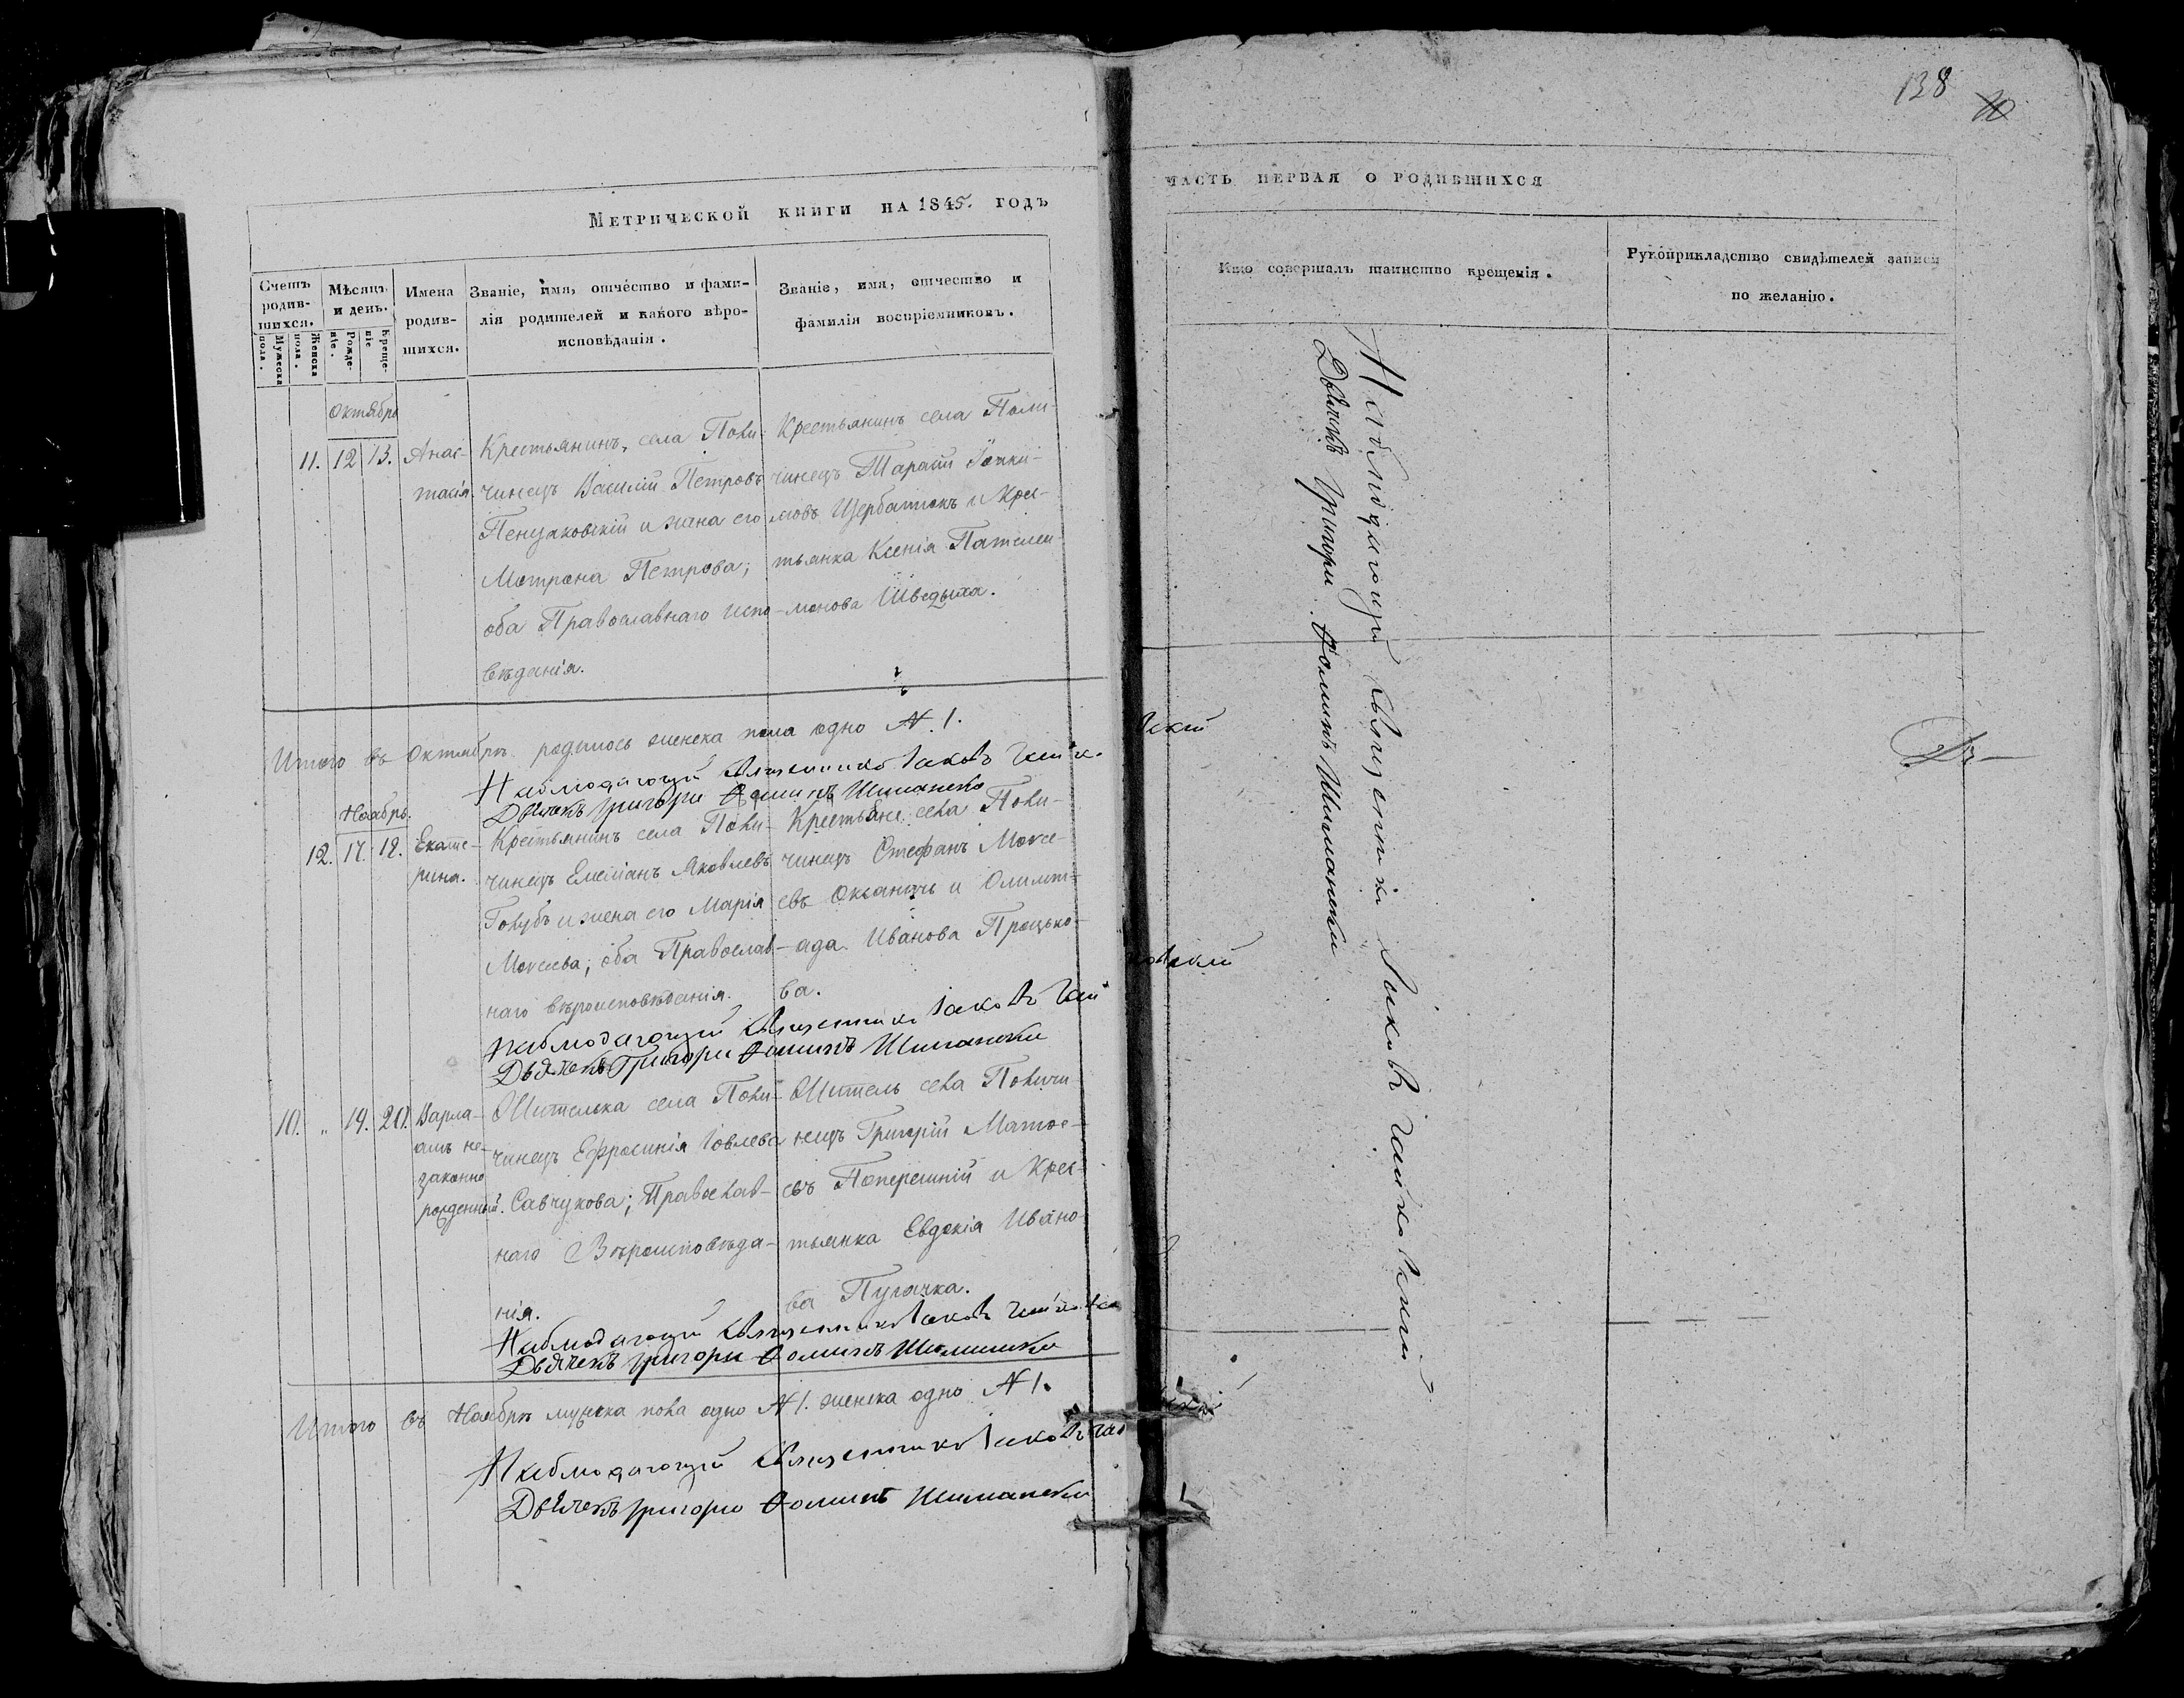 Метрической книги на 1845. годъ
Счетъ родив-шихся.
Мужеска пола.
Женска пола.
Мѣсяцъ и день.
Рожде-ніе.
Креще-ніе
Имена родив-шихся.
Званіе, имя, отчество и фами-
лія родителей и какого вѣро-
исповѣданія.
Званіе, имя, отчество и
фамилія воспріемниковъ.
Октябрь
11. 12 13. Анас-
тасія
Крестьянинъ, села Поли-
чинецъ Василій Петровъ
Пенцаковскій и жена его
Мотрона Петрова;
оба Православнаго испо-
вѣданія.
Крестьянинъ села Поли-
чинецъ Тарасій Іоаки-
мовъ Щербатюкъ и Крес-
тьянка Ксенія Пателей-
монова Шведыха.
Итого въ Октябрѣ родилось женска пола одно N. 1.
Наблюдающій Священникъ Іаковъ
Дьячекъ Григори Фоминъ Шимански
Ноябрь.
12. 17. 18. Екате-
рина.
Крестьянинъ села Поли-
чинецъ Емеліанъ Яковлевъ
Голубъ и жена его Марія
Моисеева; оба Православ-
наго вѣроисповѣданія.
Крестьяне села Поли-
чинецъ Стефанъ Моисе-
евъ Оксаничъ и Олимпі-
ада Иванова Процько-
ва.
Наблюдающій Священникъ Іаковъ
Дьячекъ Григори Фоминъ Шимански
10. „ 19. 20. Варла-
амъ не-
законно
рожденный.
Жителька села Поли-
чинецъ Ефросинія Іовлева
Савчукова; Православ-
наго Вѣроисповѣда-
нія.
Житель села Поличи-
нецъ Григорій Матѳе-
евъ Поперешній и Крес-
тьянка Евдокія Ивано-
ва Пугачка.
Наблюдающій Священникъ Іаковъ
Дьячекъ Григори Фоминъ Шимански
Итого въ Ноябрѣ мужска пола одно N 1. женска одно N 1.
Наблюдающій Священникъ Іаковъ
Дьячекъ Григори Фоминъ Шимански
138
часть первая о родившихся
Кто совершалъ таинство крещенія.
Рукоприкладство свидѣтелей записи
по желанію.
Наблюдающій Священникъ Іаковъ
Дьячекъ Григори Фоминъ Шимански